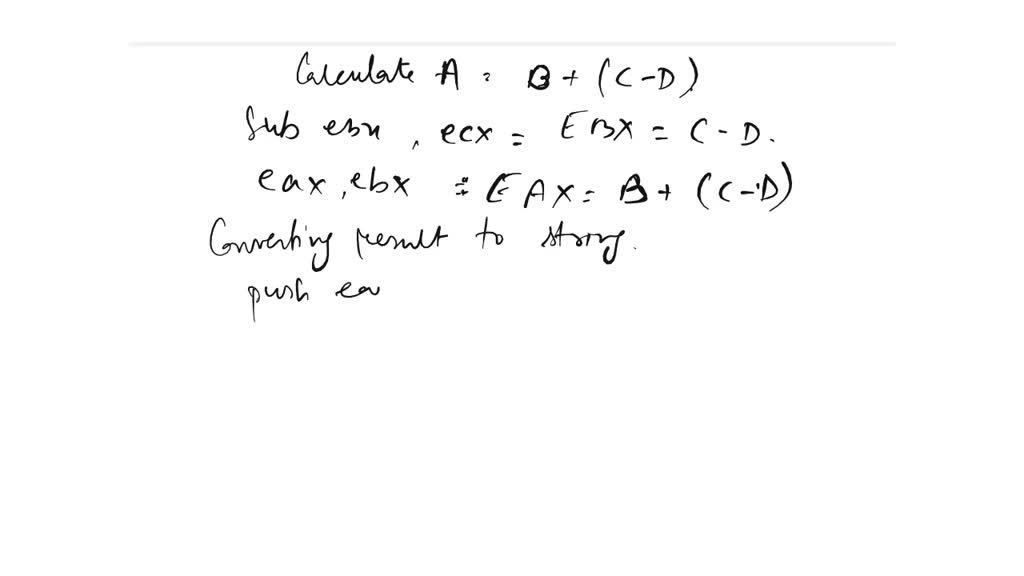 Calculate A = B + (C - D)
Sub ebx, ecx = EBX = C - D.
eax, ebx = EAX = B + (C - D)
Converting result to string.
push ea